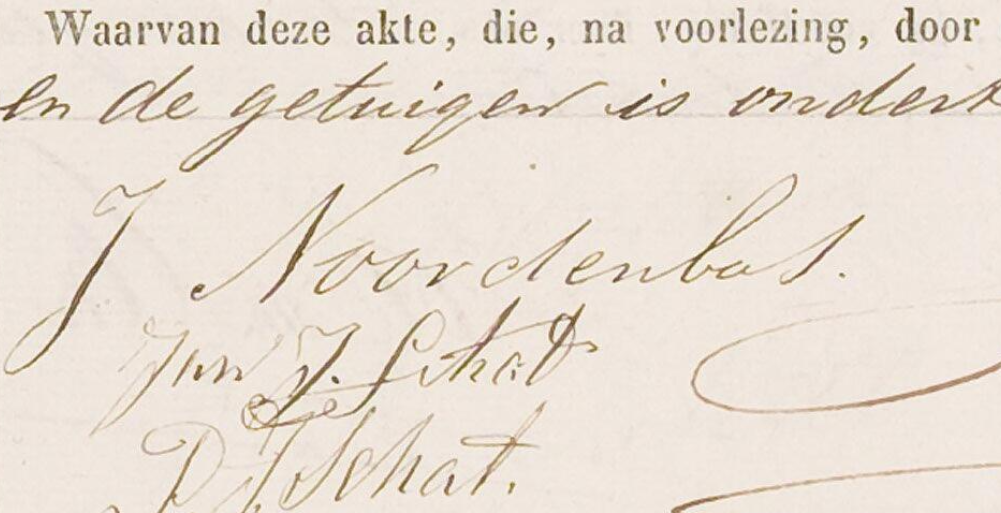 Waarvan deze akte, die, na voorlezing, door
en de getuigen is onderk
J Noordenbos.
J. Schat
Schat.